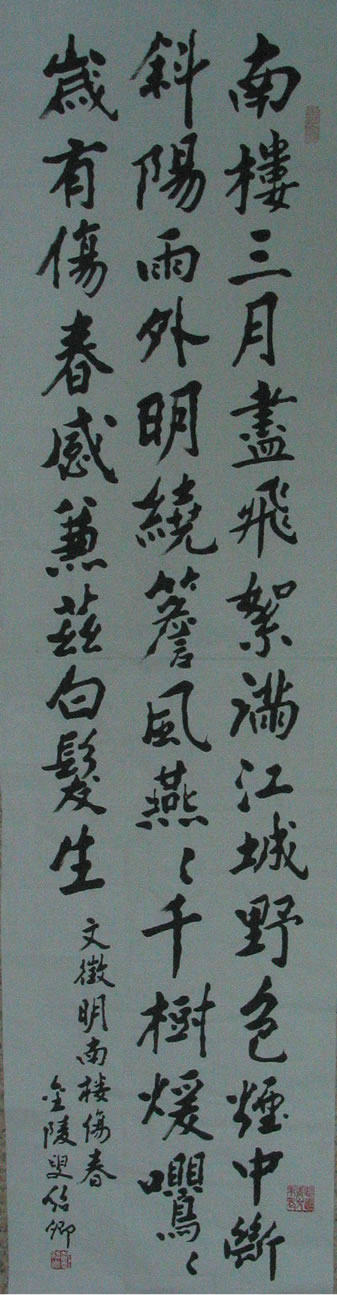 南樓三月盡飛絮滿江城野色煙中斷
斜陽雨外明繞簷風燕〻千樹煖嚶〻
歲有傷春感兼茲白髮生
文徵明南樓傷春
金陵叟卿